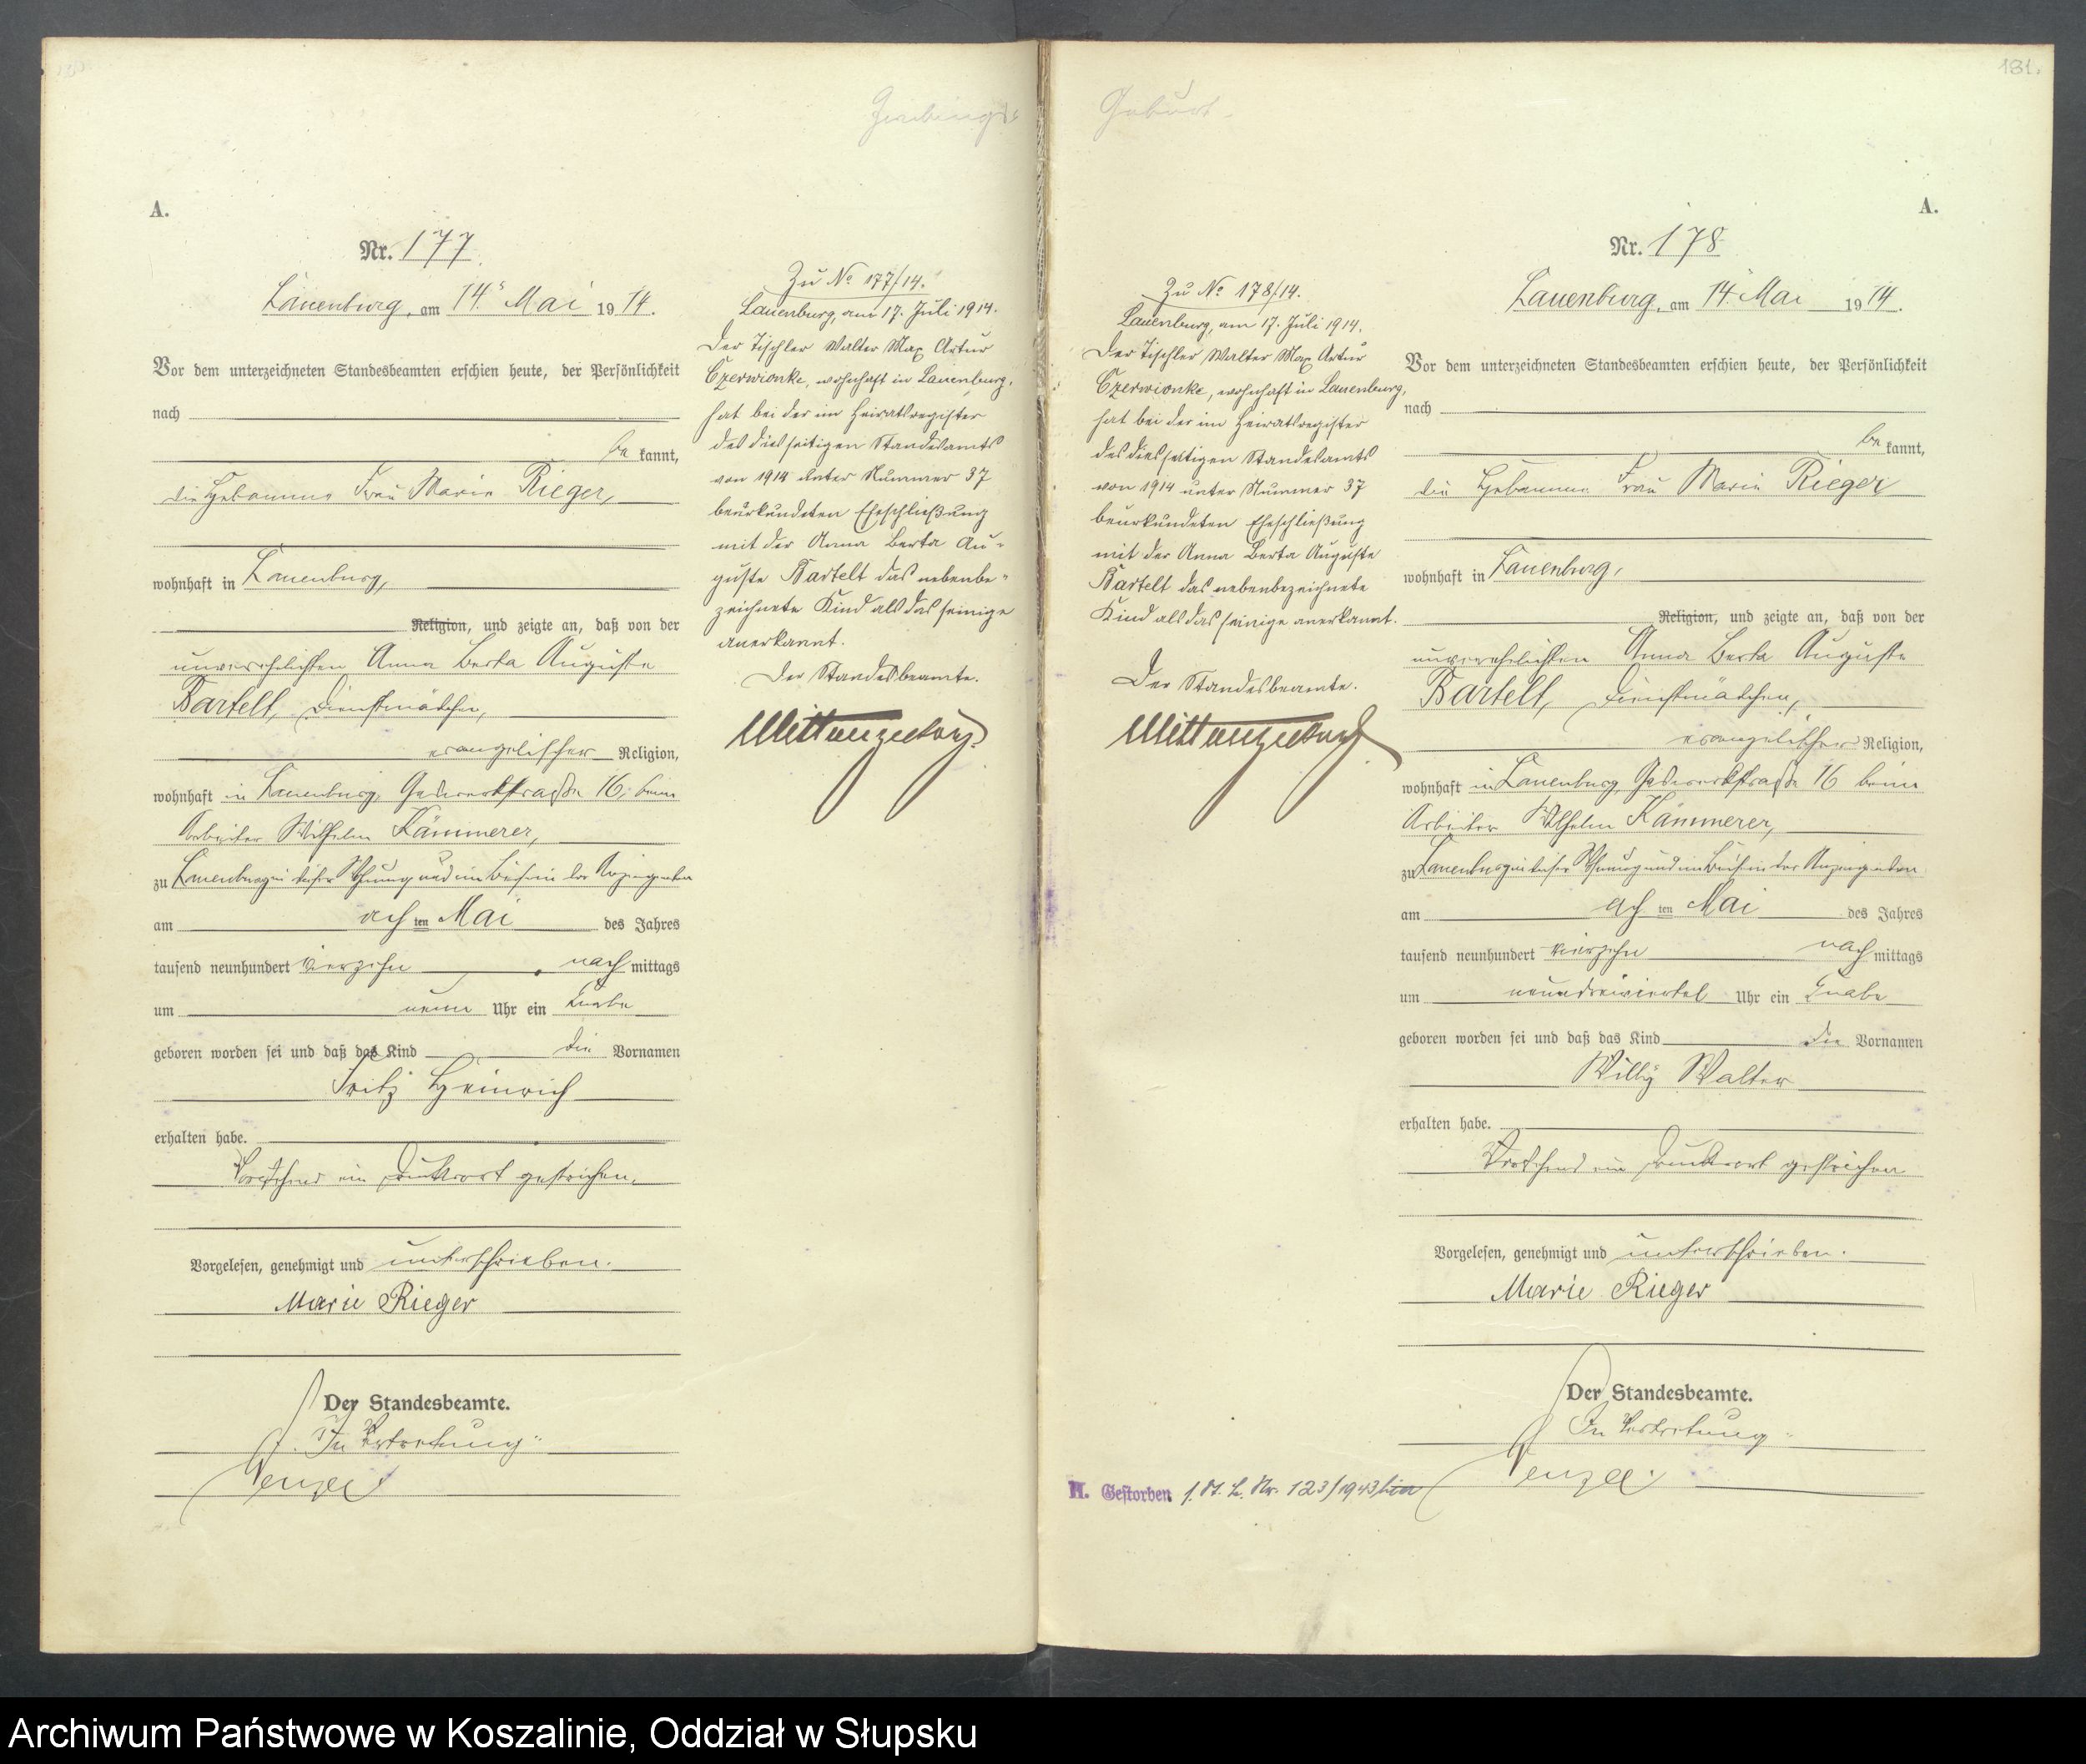 A.
Nr. 177
Lauenburg, am 14. Mai 1914.
Vor dem unterzeichneten Standesbeamten erschien heute, der Persönlichkeit
nach
be kannt,
die Hebamme Frau Marie Rieger,
wohnhaft in Lauenburg,
Religion, und zeigte an, daß von der
unverehelichten Anna Berta Auguste
Bartelt, Dienstmädchen,
evangelischer Religion,
wohnhaft in Lauenburg, 16, beim
Arbeiter Wilhelm Kämmerer,
zu Lauenburg in dieser Wohnung und im Beisein der Anzeigenden
am ach ten Mai des Jahres
tausend neunhundert vierzehn nach mittags
um neun Uhr ein Knabe
geboren worden sei und daß das Kind die Vornamen
Fritz Heinrich
erhalten habe.
Vorstehend ein Druckwort gestrichen.
Vorgelesen, genehmigt und unterschrieben.
Marie Rieger
Der Standesbeamte.
In Vertretung:
Wenzel
Zu No 177/14.
Lauenburg, am 17. Juli 1914.
Der Tischler Walter Max Artur
Czerwionke, wohnhaft in Lauenburg,
hat bei der im Heiratsregister
des diesseitigen Standesamts
von 1914 unter Nummer 37
beurkundeten Eheschließung
mit der Anna Berta Au-
guste Bartelt das nebenbe-
zeichnete Kind als das seinige
anerkannt.
Der Standesbeamte.
Geburt
181.
A.
Zu No 178/14.
Lauenburg, am 17. Juli 1914.
Der Tischler Walter Max Artur
Czerwionke, wohnhaft in Lauenburg,
hat bei der im Heiratsregister
des diesseitigen Standesamts
von 1914 unter Nummer 37
beurkundeten Eheschließung
mit der Anna Berta Auguste
Bartelt das nebenbezeichnete
Kind als das seinige anerkannt.
Der Standesbeamte.
Nr. 178
Lauenburg, am 14. Mai 1914.
Vor dem unterzeichneten Standesbeamten erschien heute, der Persönlichkeit
nach
be kannt,
die Hebamme Frau Marie Rieger
wohnhaft in Lauenburg,
Religion, und zeigte an, daß von der
unverehelichten Anna Berta Auguste
Bartelt, Dienstmädchen,
evangelischer Religion,
wohnhaft in Lauenburg, 16 beim
Arbeiter Wilhelm Kämmerer,
zu Lauenburg in dieser Wohnung und im Beisein der Anzeigenden
am ach ten Mai des Jahres
tausend neunhundert vierzehn nach mittags
um neundreiviertel Uhr ein Knabe
geboren worden sei und daß das Kind die Vornamen
Willy Walter
erhalten habe.
Vorstehend ein Druckwort gestrichen
Vorgelesen, genehmigt und unterschrieben.
Marie Rieger
Der Standesbeamte.
In Vertretung:
Wenzel
H. Gestorben Nr. 123/1943
Archiwum Państwowe w Koszalinie, Oddział w Słupsku